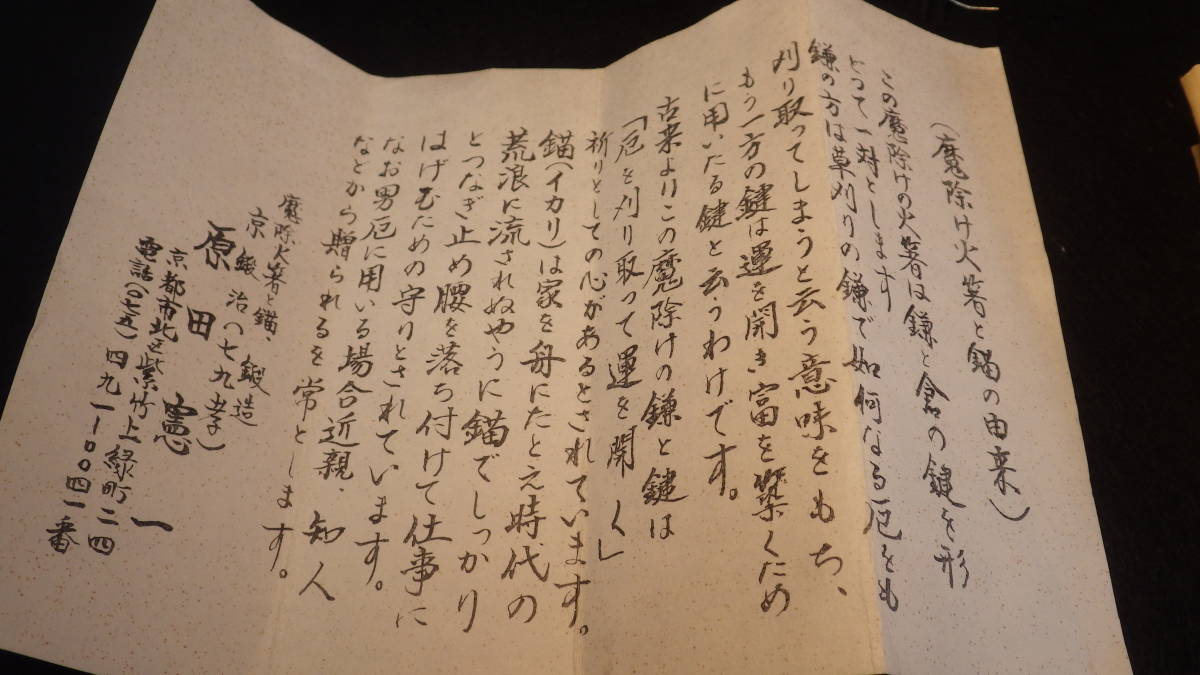 (魔除け火箸と錨の由来)
この魔除けの火箸は鎌と倉の鍵を形
とって一対とします
鎌の方は草刈りの鎌で如何なる厄をも
刈り取ってしまうと云う意味をもち、
もう一方の鍵は運を開き富を築くため
に用いたる鍵と云うわけです。
古来よりこの魔除けの鎌と鍵は
「厄を刈り取って運を開く」
祈りとしての心があるとされています。
錨(イカリ)は家を舟にたとえ時代の
荒浪に流されぬやうに錨でしっかり
とつなぎ止め腰を落ち付けて仕事に
はげむための守りとされています。
なお男厄に用いる場合近親、知人
などから贈られるを常とします。
魔除火箸と錨、鍛造
京鍛治(七九才)
原田憲一
京都市北区紫竹上緑町二四
電話(〇七五)四九一ー〇〇四一番